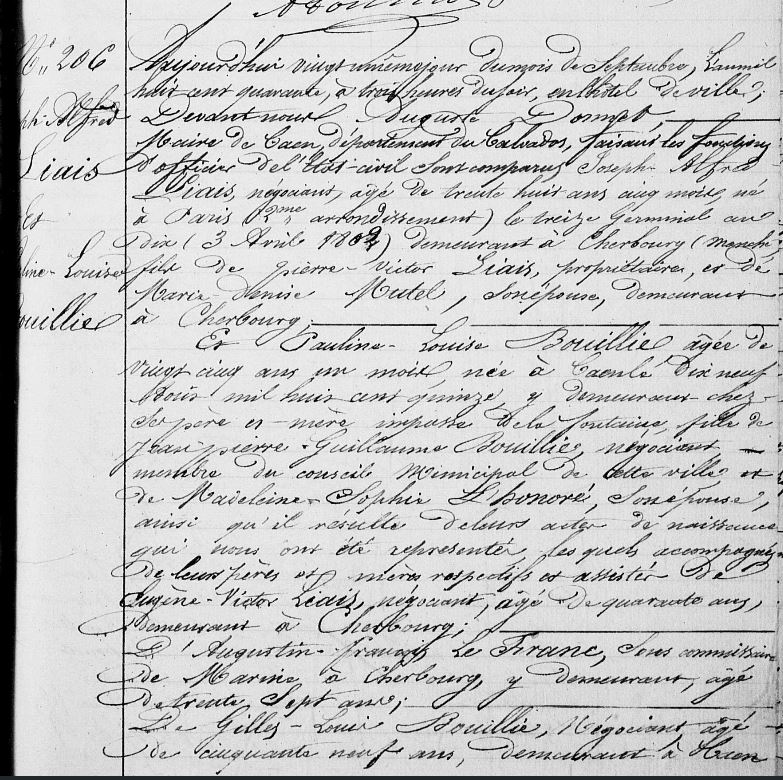 N° 206
ph-Alfred
Liais
Et
line-Louise
ouillie
Aujourd'hui vingt unième jour du mois de Septembre, L'an mil
huit cent quarante, à trois heures du soir, en l'hôtel de ville;
Devant nous Auguste Donnet,
Maire de Caen, département du Calvados, faisant les fonctions
d'officier de l'État-civil sont comparus Joseph-Alfred
Liais, négociant, âgé de trente huit ans cinq mois, né
à Paris (2me arrondissement) le treize Germinal an
dix (3 Avril 1802) demeurant à Cherbourg (manche)
fils de pierre-Victor Liais, propriétaire, et de
Marie-Denise Mutel, son épouse, demeurant
à Cherbourg;
Et Pauline-Louise Bouillie âgée de
vingt cinq ans un mois, née à Caen le Dix neuf
Août mil huit cent quinze, y demeurant chez
Ses père et mère impasse de la fontaine, fille de
Jean-pierre-Guillaume Bouillie, négociant
membre du conseil Municipal de cette ville et
de Madeleine-Sophie L'honoré, son épouse,
ainsi qu'il résulte de leurs actes de naissance
qui nous ont été représentés, lesquels accompagnés
de leurs pères et mères respectifs et assistés De
Eugène-Victor Liais, négociant, âgé de quarante ans,
demeurant à Cherbourg;
D'Augustin-françois Le Franc, Sous commissaire
de Marine, à Cherbourg, y demeurant, âgé
de trente Sept ans;
De Gilles-Louis Bouillie, Négociant, âgé
de cinquante neuf ans, demeurant à Caen